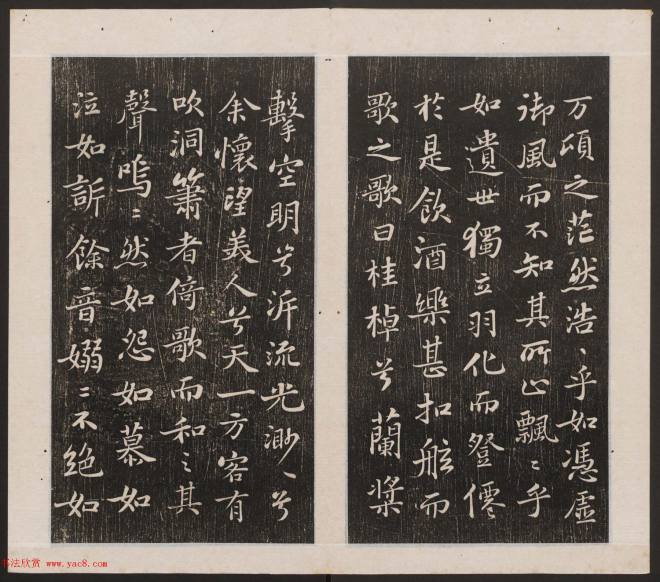 万頃之茫然浩〻乎如馮虛
御風而不知其所止飄〻乎
如遺世獨立羽化而登僊
於是飲酒樂甚扣舷而
歌之歌曰桂棹兮蘭槳
擊空明兮泝流光渺〻兮
余懷望美人兮天一方客有
吹洞簫者倚歌而和之其
聲嗚〻然如怨如慕如
泣如訴餘音嫋〻不絕如
书法欣赏 www.yac8.com